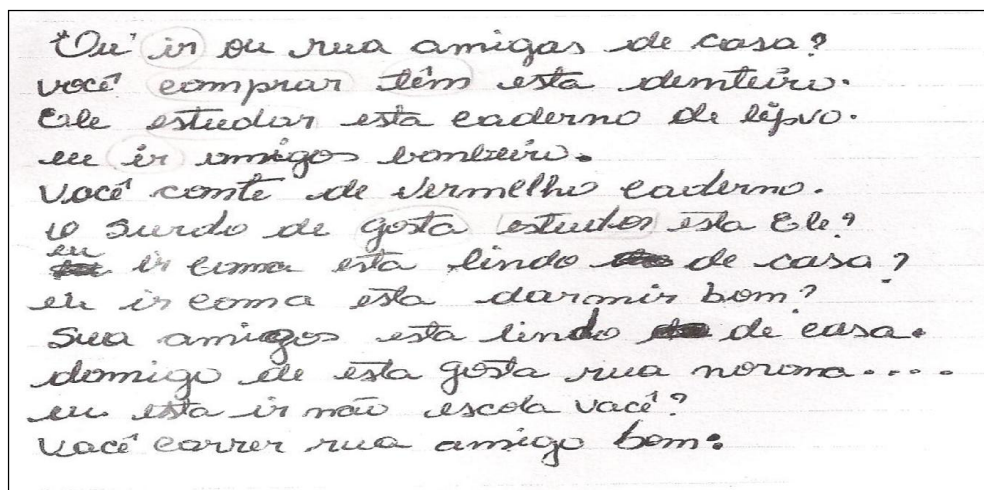 "Ou" ir ou rua amigas de casa?
você comprar têm esta demteiro.
Ele estudar esta caderno de lápvo.
eu ir amigos bonbeiro.
Você comte de vermelho caderno.
o Surdo de gosta estudos esta Ele?
eu ir cama esta lindo de casa?
eu ir coma esta darmir bom?
Sua amigos esta lindo de casa.
domigo ele esta gosta rua noroma....
eu esta ir não escola vacê?
Vacê correr rua amigo bom.